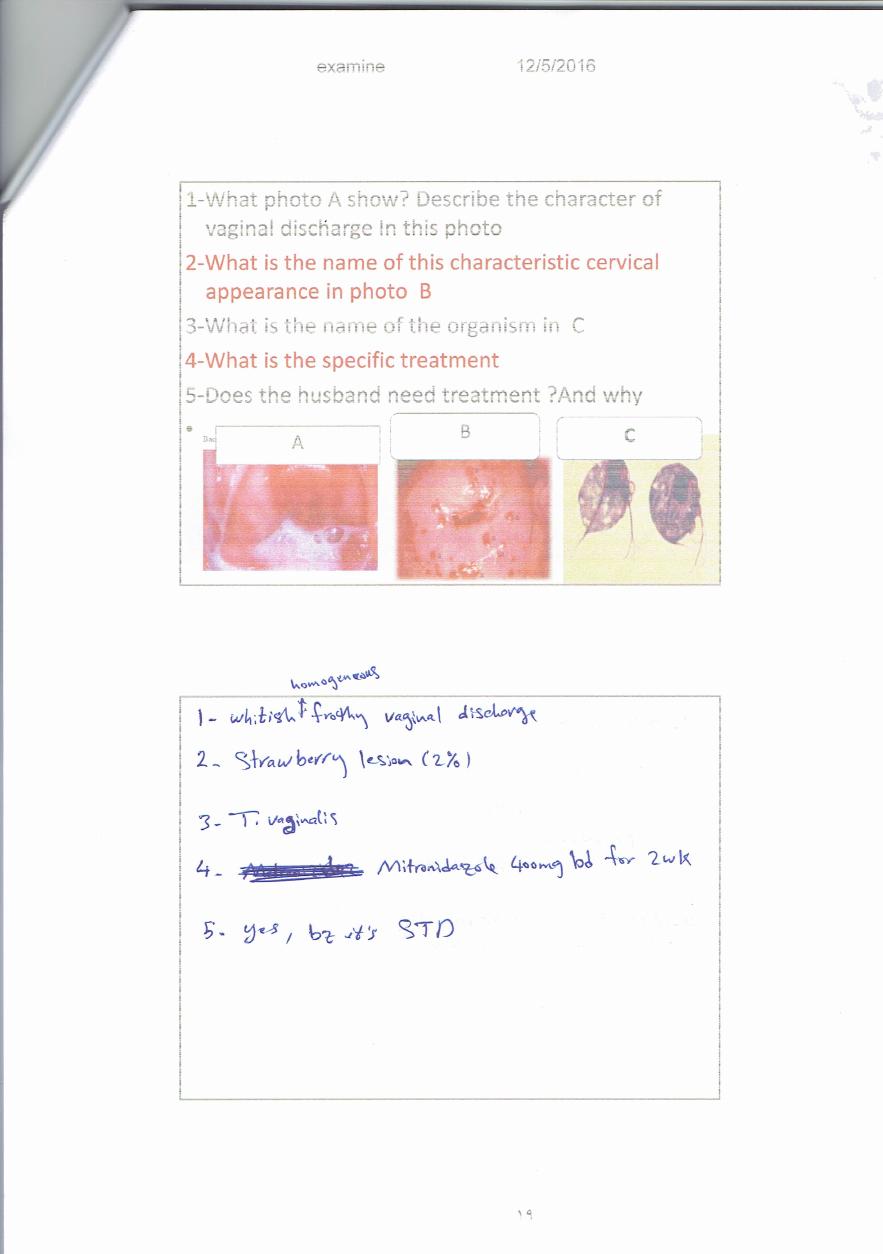 examine 12/5/2016
1-What photo A show? Describe the character of
vaginal discharge in this photo
2-What is the name of this characteristic cervical
appearance in photo B
3-What is the name of the organism in C
4-What is the specific treatment
5-Does the husband need treatment ?And why
A B C
homogeneous
1- whitish frothy vaginal discharge
2- Strawberry lesion (2%)
3- T. vaginalis
4- Mitronidazole 400mg bd for 2wk
5- yes, bz it's STD
١٩